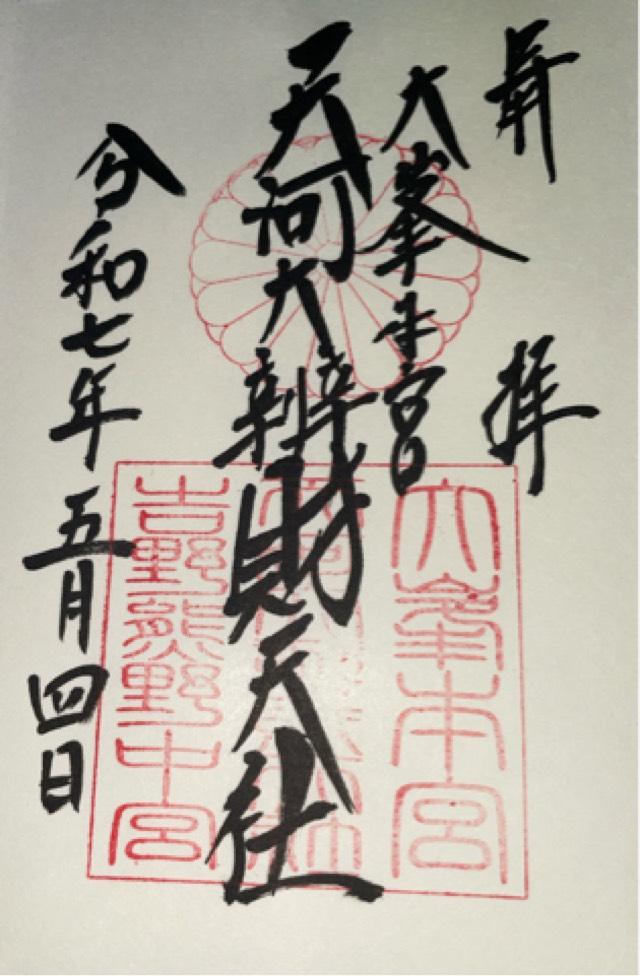 昇拝
大峯本宮
天河大辨財天社
令和七年五月四日
大峯本宮
吉野熊野中宮